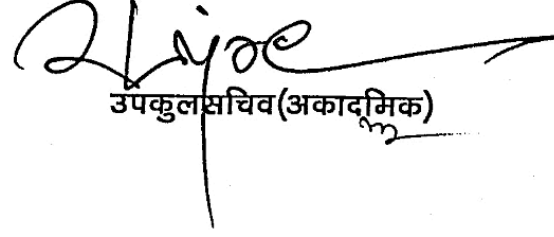 उपकुलसचिव(अकादमिक)